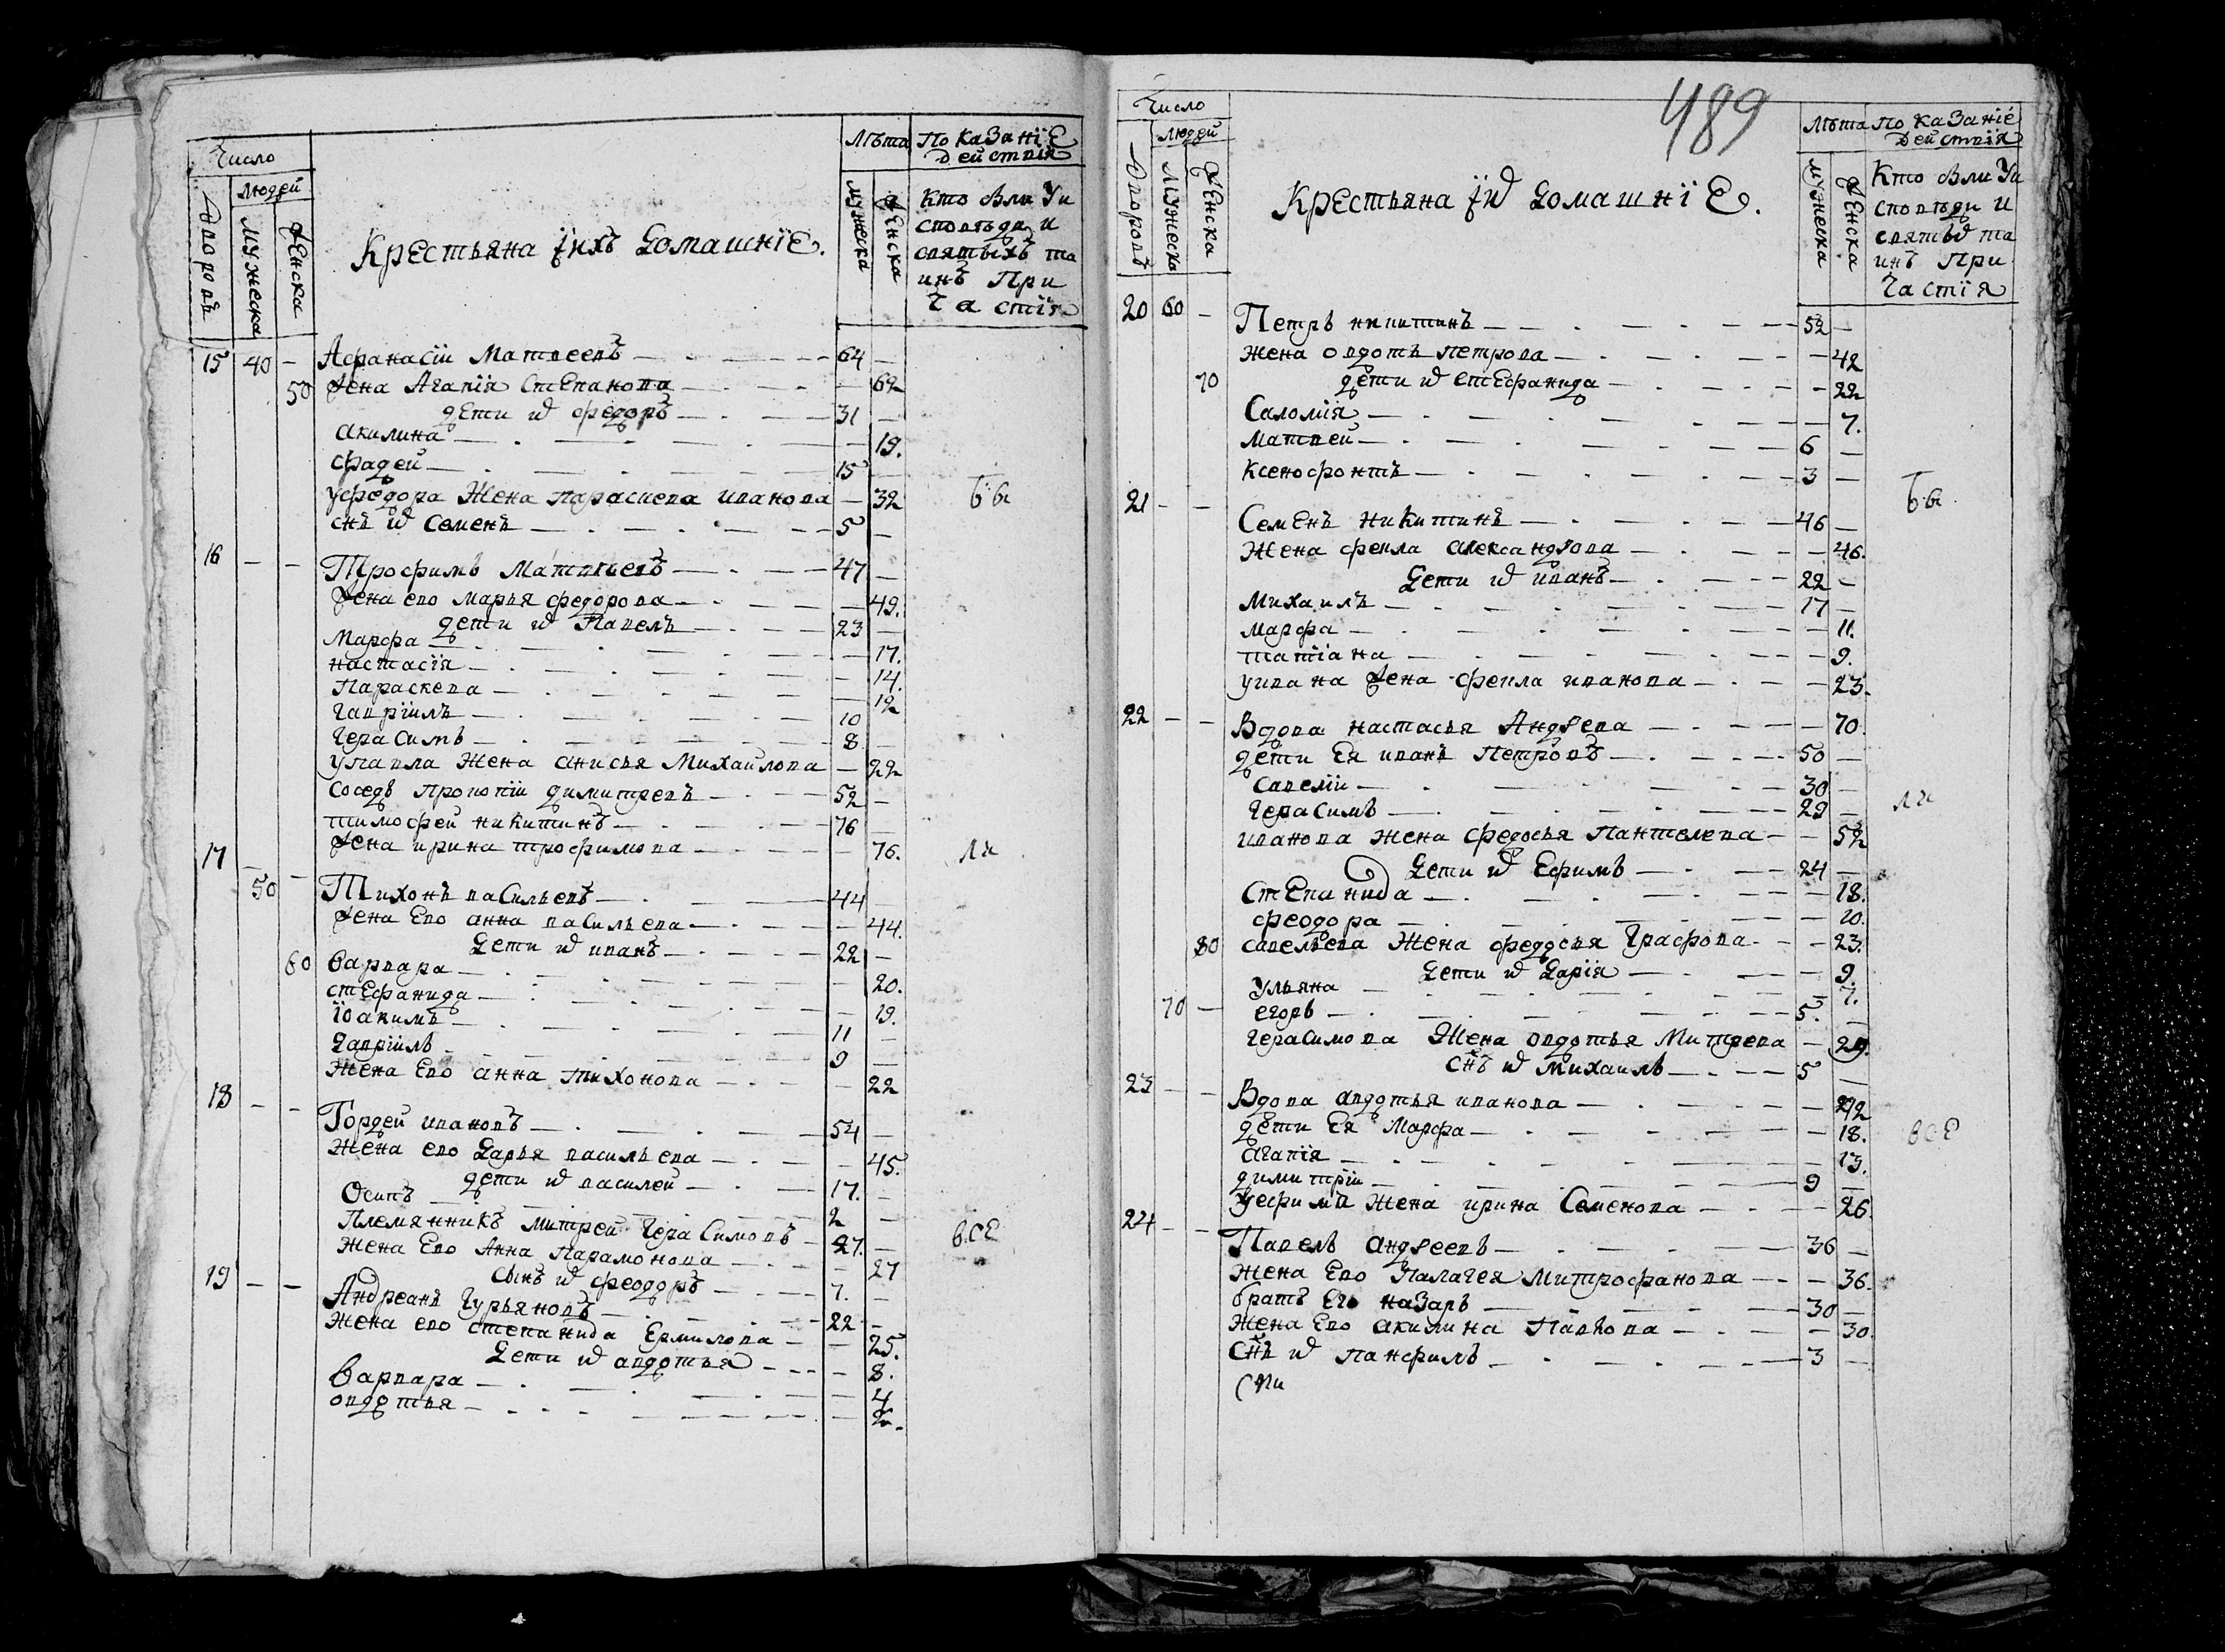 Число
Людей
Дворовъ
Мужеска
Женска
Крестьяна ї ихъ Домашнїе.
Лѣта
Мужеска
Женска
Показанїе
действїя
Кто были У и
сповѣди и
святыхъ та
инъ При
частїя
15 40 — Афанасїи Матвеевъ — 64 —
50 Жена Агапїя Степанова — 62
дети их Федоръ — 31 —
Акилина — 19.
Фадей — 15 —
У Федора Жена Параскева Иванова — 32 бы
снъ их Семенъ — 5 —
16 — — Трофимъ Матвѣевъ — 47 —
Жена ево Марья Федорова — 49.
дети их Павелъ — 23 —
Марфа — 17.
настасїя — 14.
Параскева — 12
Гаврїилъ — 10
Герасимъ — 8 —
У Павла Жена Анисья Михаилова — 22
Соседъ Прокопїи Димитревъ — 52 —
Тимофей Никитинъ — 76 —
Жена ирина трофимова — 76. ли
17 — —
50 Тихонъ васильевъ — 44 —
Жена Ево анна васильева — 44.
Дети их иванъ — 22 —
60 Варвара — 20.
стефанида — 19.
їоакимъ — 11 —
Гаврїилъ — 9 —
Жена Ево анна тихонова — 22
18 — — Гордей ивановъ — 54 —
Жена ево Дарья васильева — 45.
дети их василей — 17. —
Осипъ — 2 —
Племянникъ митрей Герасимовъ — 27. — все
Жена Ево Анна Парамонова — 27
сынъ их феодоръ — 7. —
19 — — Андреанъ Гурьяновъ — 22 —
Жена ево степанида Ермилова — 25.
Дети их авдотья — 8.
Варвара — 4
овдотья — 2.
489
Число
Людей
Дворовъ
Мужеска
Женска
Крестьяна їих Домашнїе.
Лѣта
Мужеска
Женска
Показанїе
Действїя
Кто были У и
сповѣди и
святых та
инъ При
частїя
20 60 — Петръ никитинъ — 52 —
Жена овдотья петрова — 42
70 дети их стефанида — 22
Саломїя — 7.
Матвей — 6 —
Ксенофонтъ — 3 —
21 — — Семенъ никитинъ — 46 — бы
Жена фекла александрова — 46.
Дети их иванъ — 22 —
Михаилъ — 17 —
Марфа — 11.
татїана — 9.
У ивана Жена фекла иванова — 23.
22 — — Вдова настасья Андрева — 70.
дети Ея иванъ Петровъ — 50 —
Савелїи — 30 — ли
Герасимъ — 29 —
иванова жена федосья Пантелева — 52
Дети их Ефимъ — 24 —
Степанида — 18.
феодора — 10.
80 савельева Жена федосья Графова — 23.
Дети их Дарїя — 9.
Ульяна — 7.
70 — егоръ — 5. —
Герасимова Жена овдотья Митрева — 29.
снъ их Михаилъ — 5 —
23 — — Вдова авдотья иванова — 42
дети Ея Марфа — 18. все
Агапїя — 13.
димитрїи — 9 —
У ефима Жена ирина Семенова — 26.
24 — — Павелъ андреевъ — 36 —
Жена Ево Палагея Митрофанова — 36.
братъ Его назаръ — 30 —
Жена Ево акилина Павлова — 30.
снъ их Панфилъ — 3 —